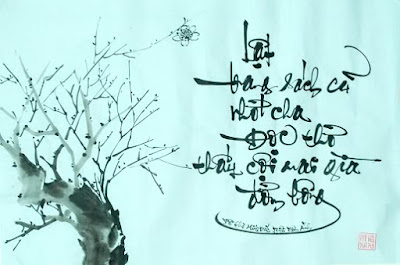 Lật
trang sách cũ
nhớ cha
Đọc thơ
thấy cội mai già
đơm bông